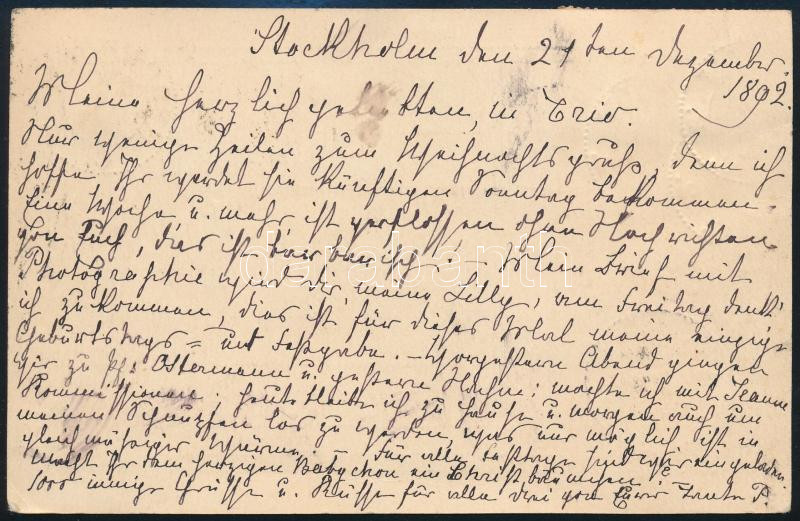 Stockholm den 21ten Dezember
1892.
Meine herzlichgeliebten, in Trio.
Nur wenige Zeilen zum Weihnachtsgruß, denn ich
hoffe Ihr werdet sie künftigen Sonntag bekommen.
Eine Woche u. mehr ist verflossen ohne Nachrichten
von Euch, das ist barbarisch! – Mein Brief mit
Photographie wird Dir, meine Lilly, am Freitag denk'
ich zukommen, das ist für dieses Mal meine einzige
Geburtstags= und Festgabe. – Vorgestern Abend gingen
wir zu Ostermann u. gestern machte ich mit Jeanne
Kommissionen. heute bleibe ich zu Hause u. morgen auch um
meinen Schnupfen los zu werden, was nur möglich ist in
gleichmäßiger Wärme. – Für alle Festtage sind wir eingeladen.
macht Ihr dem herzigen Babychen ein Christbäumchen?
1000 innige Grüsse u. Küsse für alle drei von Eurer Tante P.
darabanth